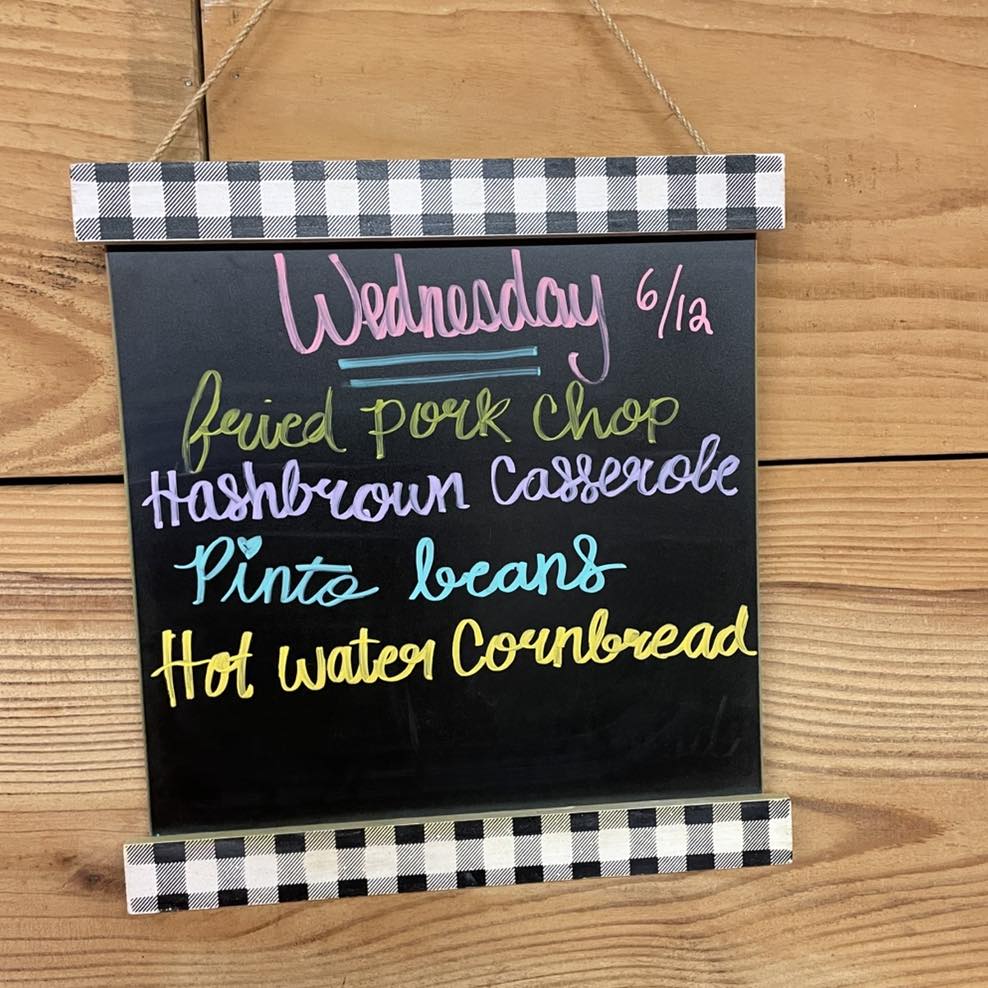 Wednesday 6/12
fried pork chop
Hashbrown Casserole
Pinto beans
Hot water Cornbread